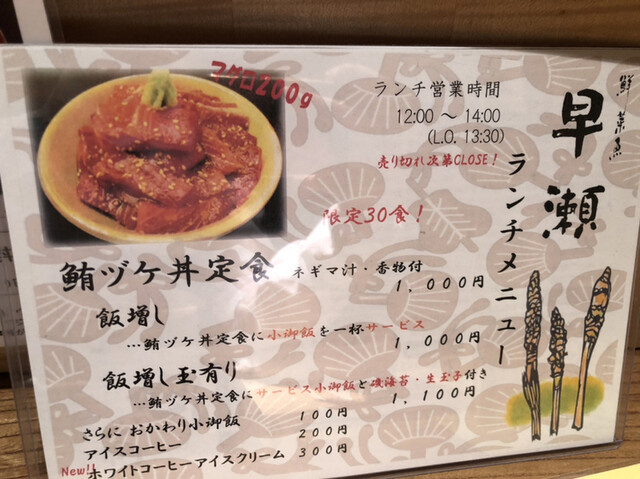 鮮菜魚
早瀬
ランチメニュー
ランチ営業時間
12:00 ～ 14:00
(L.O. 13:30)
売り切れ次第CLOSE！
マグロ200g
限定30食！
鮪ヅケ丼定食 ネギマ汁・香物付
1,000円
飯増し
…鮪ヅケ丼定食に小御飯を一杯サービス
1,000円
飯増し玉有り
…鮪ヅケ丼定食にサービス小御飯と磯海苔・生玉子付き
1,100円
さらに おかわり小御飯 100円
アイスコーヒー 200円
New!! ホワイトコーヒーアイスクリーム 300円